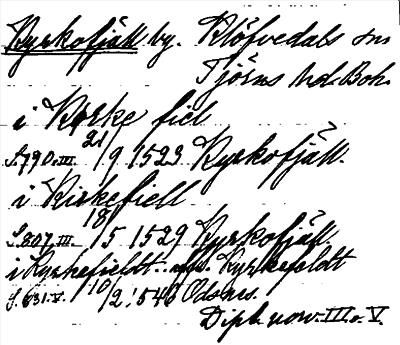 Kyrkofjäll by. Klöfvedals sn
Tjörns hd. Boh.
i Kyrke fiell
S. 790. III. 21/9 1523 Kyrkofjäll.
i Kirkefiell
S. 807. III. 18/5 1529 Kyrkofjäll
i Kyrkefieldt.. Kyrkefeldt
S. 631. V. 10/2 1546 Odsmes.
Dipl. norv. III o. V.